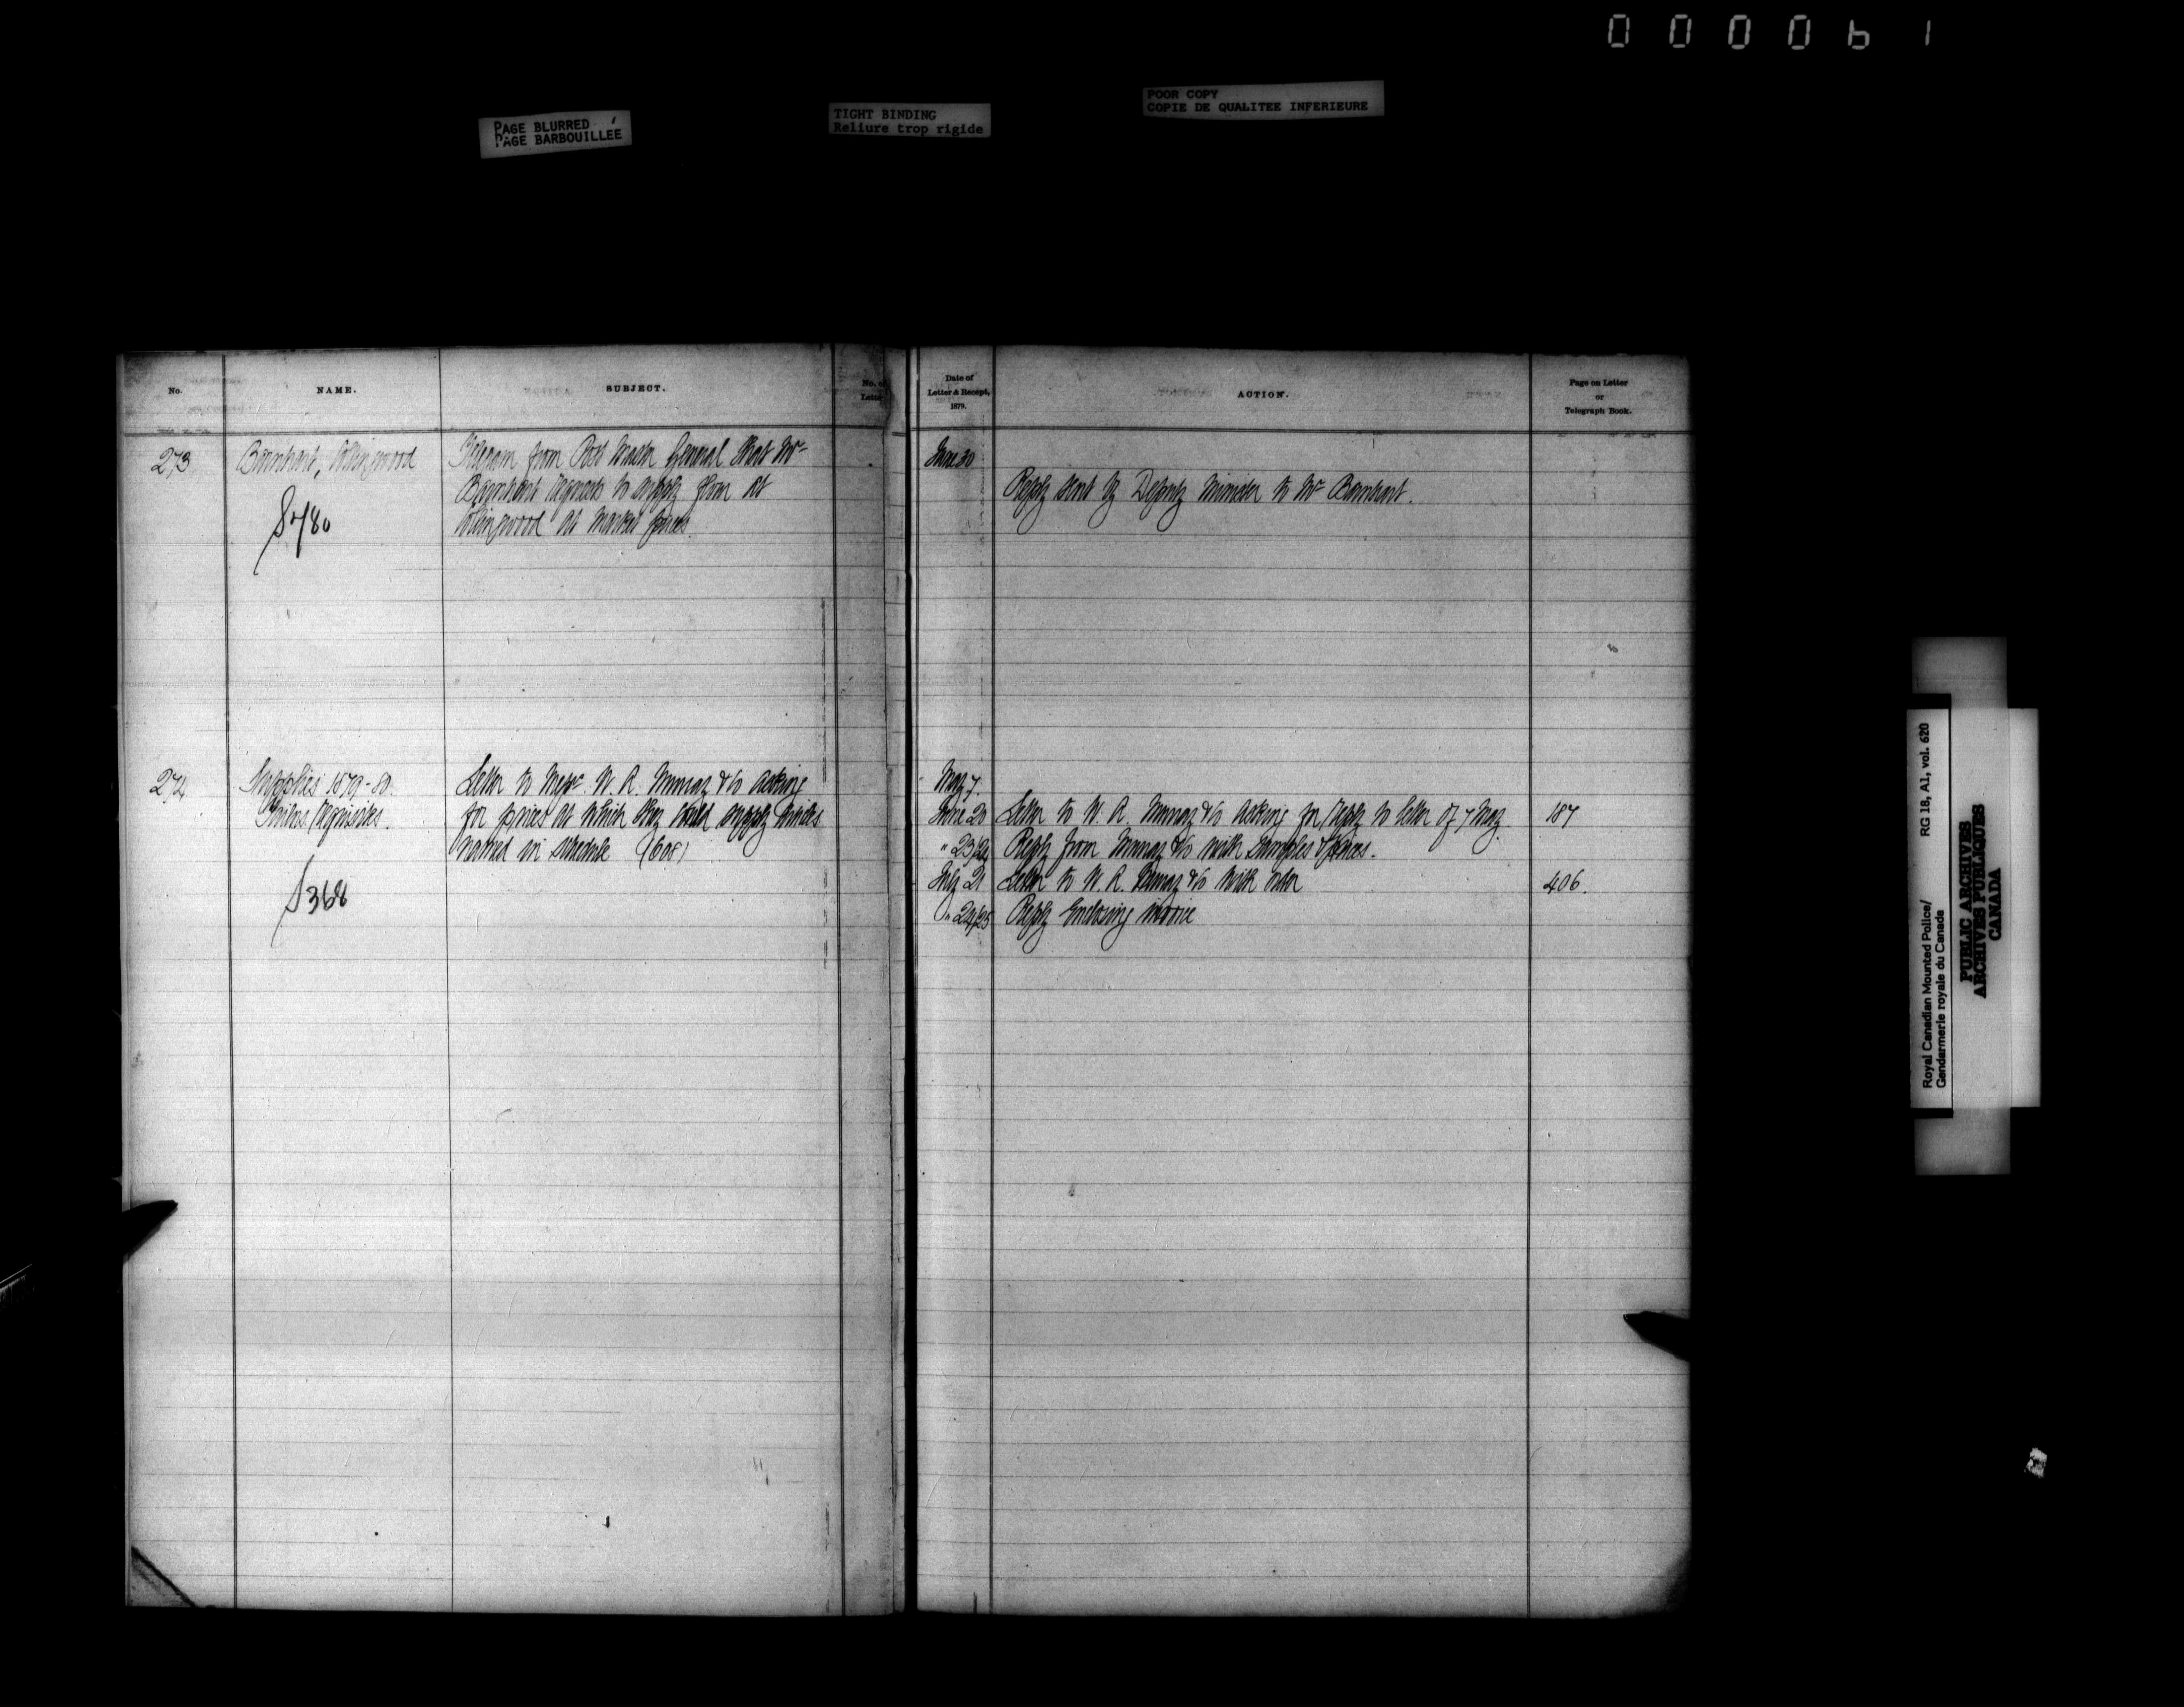 000061
PAGE BLURRED
PAGE BARBOUILLÉE
TIGHT BINDING
Reliure trop rigide
POOR COPY
COPIE DE QUALITEE INFERIEURE
No.
NAME.
SUBJECT.
No. of
Letter
Date of
Letter & Receipt,
1879.
ACTION.
Page on Letter
or
Telegraph Book.
273
Barnhart, Collingwood
Telegram from Post Master General that Mr
Barnhart agrees to supply flour at
Collingwood at market prices.
June 30
Reply sent by Deputy Minister to Mr Barnhart.
274
Supplies 1879-80.
Letter to Messrs. W. R. Murray & Co asking
for prices at which they could supply articles
named in schedule (608)
368
May 7.
June 20 Letter to W. R. Murray & Co asking for reply to letter of 7 May. 187
" 23/24 Reply from Murray & Co with samples & prices.
July 21 Letter to W. R. Murray & Co with order 406.
" 24/25 Reply enclosing invoice
Royal Canadian Mounted Police/
Gendarmerie royale du Canada
RG 18, A1, vol. 620
PUBLIC ARCHIVES
ARCHIVES PUBLIQUES
CANADA